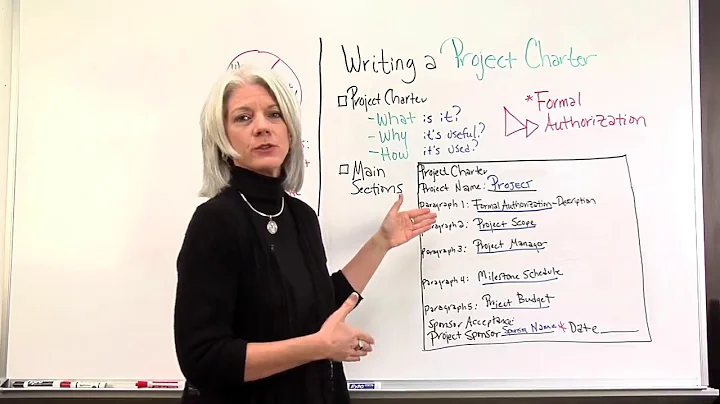 Writing a Project Charter
Project Charter
- What is it?
- Why it's useful?
- How it's used?
* Formal
Authorization
Main
Sections
Project Charter
Project Name: PROJECT
Paragraph 1: Formal Authorization - Description
Paragraph 2: Project Scope
Paragraph 3: Project Manager
Paragraph 4: Milestone Schedule
Paragraph 5: Project Budget
Sponsor Acceptance:
Project Sponsor Sponsor Name * Date